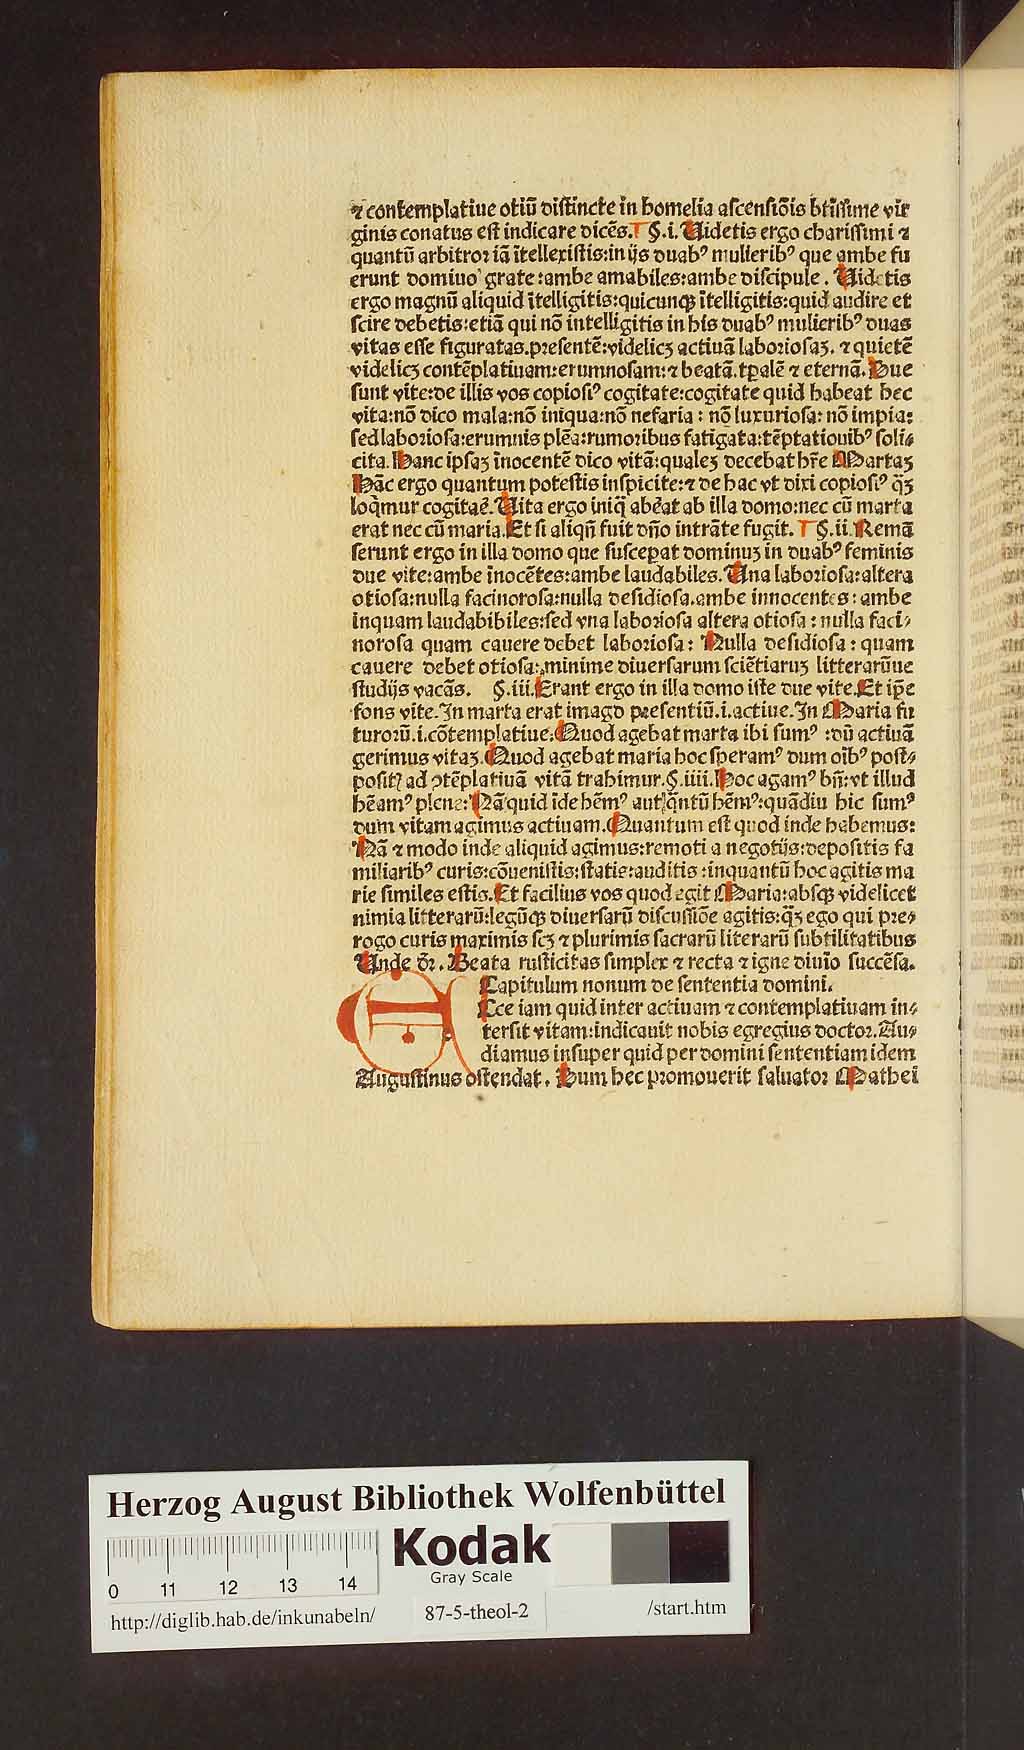 ⁊ contemplatiue otiū distincte in homelia ascensiōis btissime vir
ginis conatus est indicare dicēs. §.i. Uidetis ergo charissimi ⁊
quantū arbitror iā ītellexistis: in ijs duabꝰ mulieribꝰ que ambe fu
erunt domino grate: ambe amabiles: ambe discipule. Uidetis
ergo magnū aliquid ītelligitis: quicunqꝫ ītelligitis: quid audire et
scire debetis: etiā qui nō intelligitis in his duabꝰ mulieribꝰ duas
vitas esse figuratas. presentē: videlicꝫ actiuā laboriosaꝫ. ⁊ quietē
videlicꝫ contēplatiuam: erumnosam: ⁊ beatā. tꝑalē ⁊ eternā. Due
sunt vite: de illis vos copiosiꝰ cogitate: cogitate quid habeat hec
vita: nō dico mala: nō iniqua: nō nefaria: nō luxuriosa: nō impia:
sed laboriosa: erumnis plēa: rumoribus fatigata: tēptationibꝰ soli⸗
cita. Hanc ipsaꝫ īnocentē dico vitā: qualeꝫ decebat hr̄e Martaꝫ
Hāc ergo quantum potestis inspicite: ⁊ de hac vt dixi copiosiꝰ qꝫ̄
loq̄mur cogitaē. Uita ergo iniq̄ abēat ab illa domo: nec cū marta
erat nec cū maria. Et si aliqn̄ fuit dn̄o intrāte fugit. §.ii. Remā
serunt ergo in illa domo que susceꝑat dominuꝫ in duabꝰ feminis
due vite: ambe inocētes: ambe laudabiles. Una laboriosa: altera
otiosa: nulla facinorosa: nulla desidiosa. ambe innocentes: ambe
inquam laudabibiles: sed vna laboriosa altera otiosa: nulla faci⸗
norosa quam cauere debet laboriosa: Nulla desidiosa: quam
cauere debet otiosa: minime diuersarum sciētiaruꝫ litterarūue
studijs vacās. §.iii. Erant ergo in illa domo iste due vite. Et ip̄e
fons vite. In marta erat imago presentiū. i. actiue. In Maria fu
turorū. i. cōtemplatiue: Quod agebat marta ibi sumꝰ: dū actiuā
gerimus vitaꝫ. Quod agebat maria hoc speramꝰ dum oībꝰ post⸗
posit᷒ ad ꝯtēplatiuā vitā trahimur. §.iiii. Hoc agamꝰ bn̄: vt illud
hēamꝰ plene: Nā quid īde hēmꝰ aut q̄ntū hēmꝰ: quādiu hic sumꝰ
dum vitam agimus actiuam. Quantum est quod inde habemus:
Nā ⁊ modo inde aliquid agimus: remoti a negotijs: depositis fa
miliaribꝰ curis: cōuenistis: statis: auditis: inquantū hoc agitis ma
rie similes estis. Et facilius vos quod agit Maria: absqꝫ videlicet
nimia litterarū: legūqꝫ diuersarū discussiōe agitis: qꝫ̄ ego qui pre⸗
rogo curis maximis scꝫ ⁊ plurimis sacrarū literarū subtilitatibus
Unde dr̄. Beata rusticitas simplex ⁊ recta ⁊ igne diuīo succēsa.
Capitulum nonum de sententia domini.
Ecce iam quid inter actiuam ⁊ contemplatiuam in⸗
tersit vitam: indicauit nobis egregius doctor. Au⸗
diamus insuper quid per domini sententiam idem
Augustinus ostendat. Dum hec promouerit saluator Mathei
Herzog August Bibliothek Wolfenbüttel
Kodak
Gray Scale
0 11 12 13 14
http://diglib.hab.de/inkunabeln/
87-5-theol-2
/start.htm